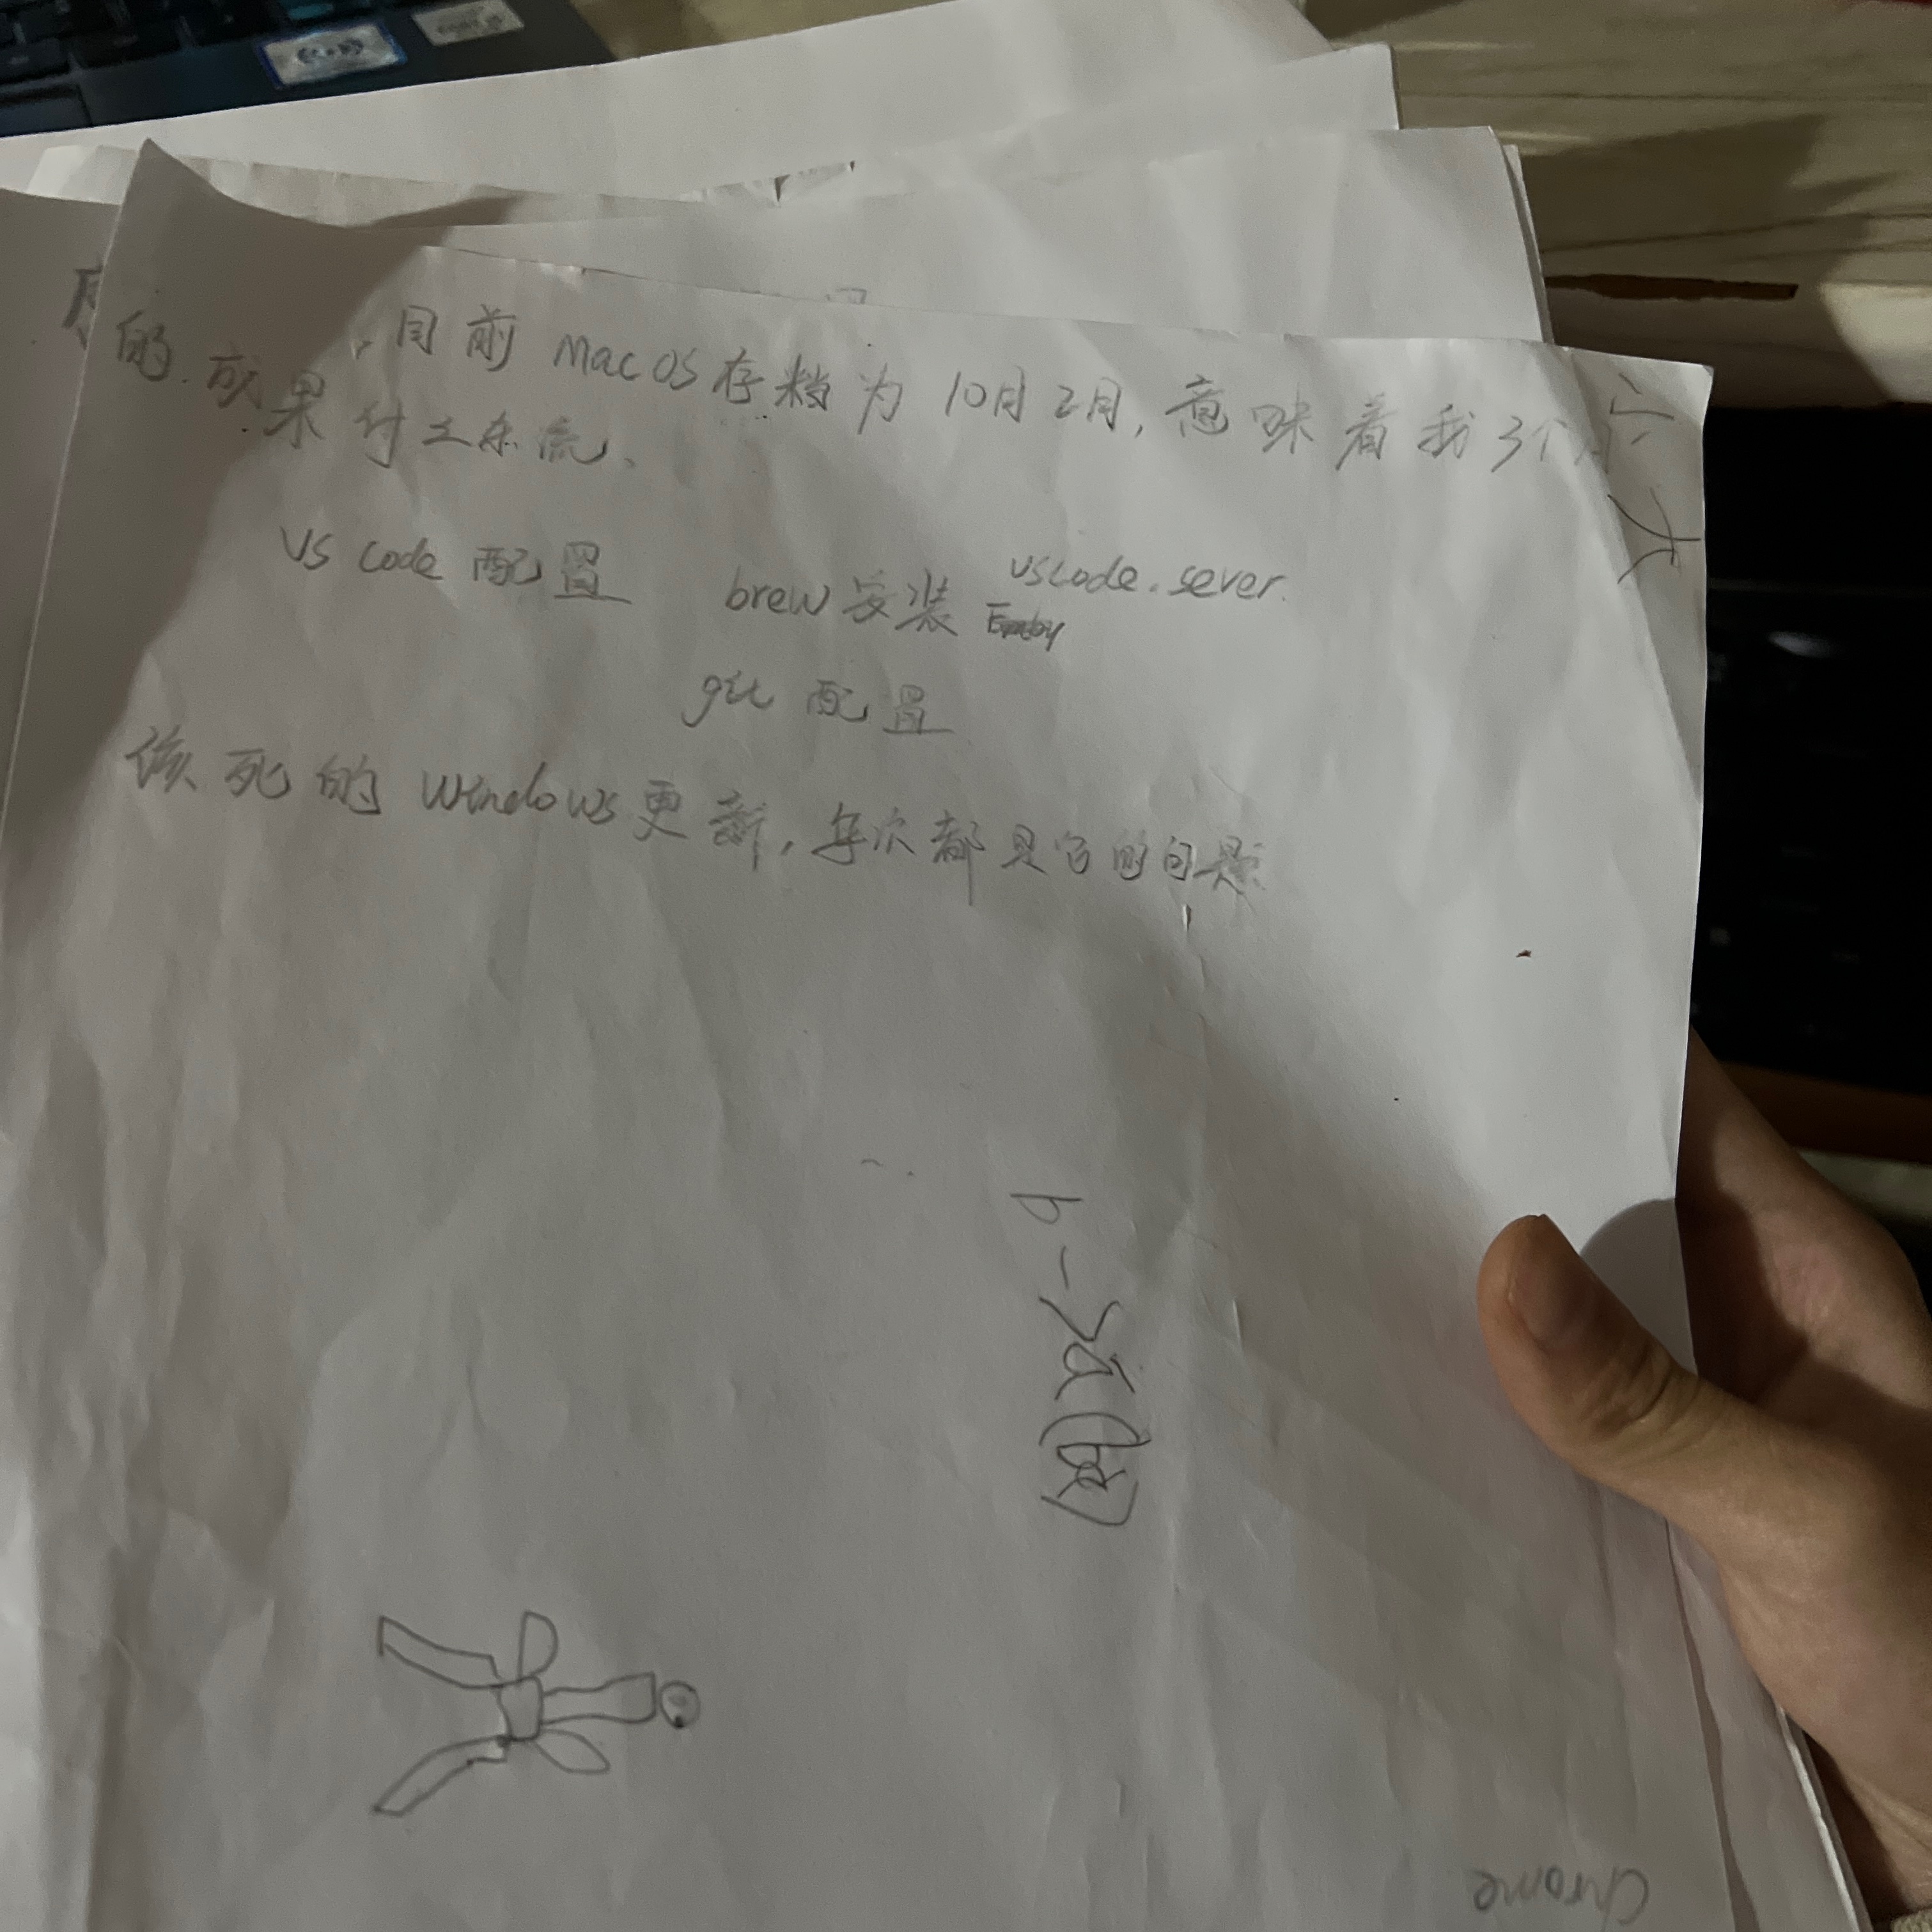 目前 macOS存档为 10月2月, 意味着我3个月
的成果付之东流。
VS Code 配置
brew 安装
vscode. sever.
Emby
git 配置
该死的 Windows更新, 每次都是它的问题
六
大
Chrome